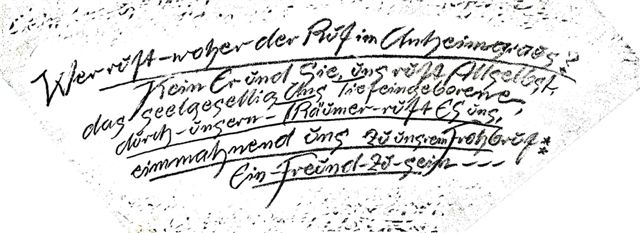 Wer ruft-woher der Ruf im Anheimgraus?
Kein Er und Sie, uns ruft Allselbst,
das seelgesellig Uns Tiefeingeborene,
durch-unsern-Räumer-ruft Es uns,
einmahnend uns zu unsrem Frohbruf
Ein-Freund-Zu-sein ---